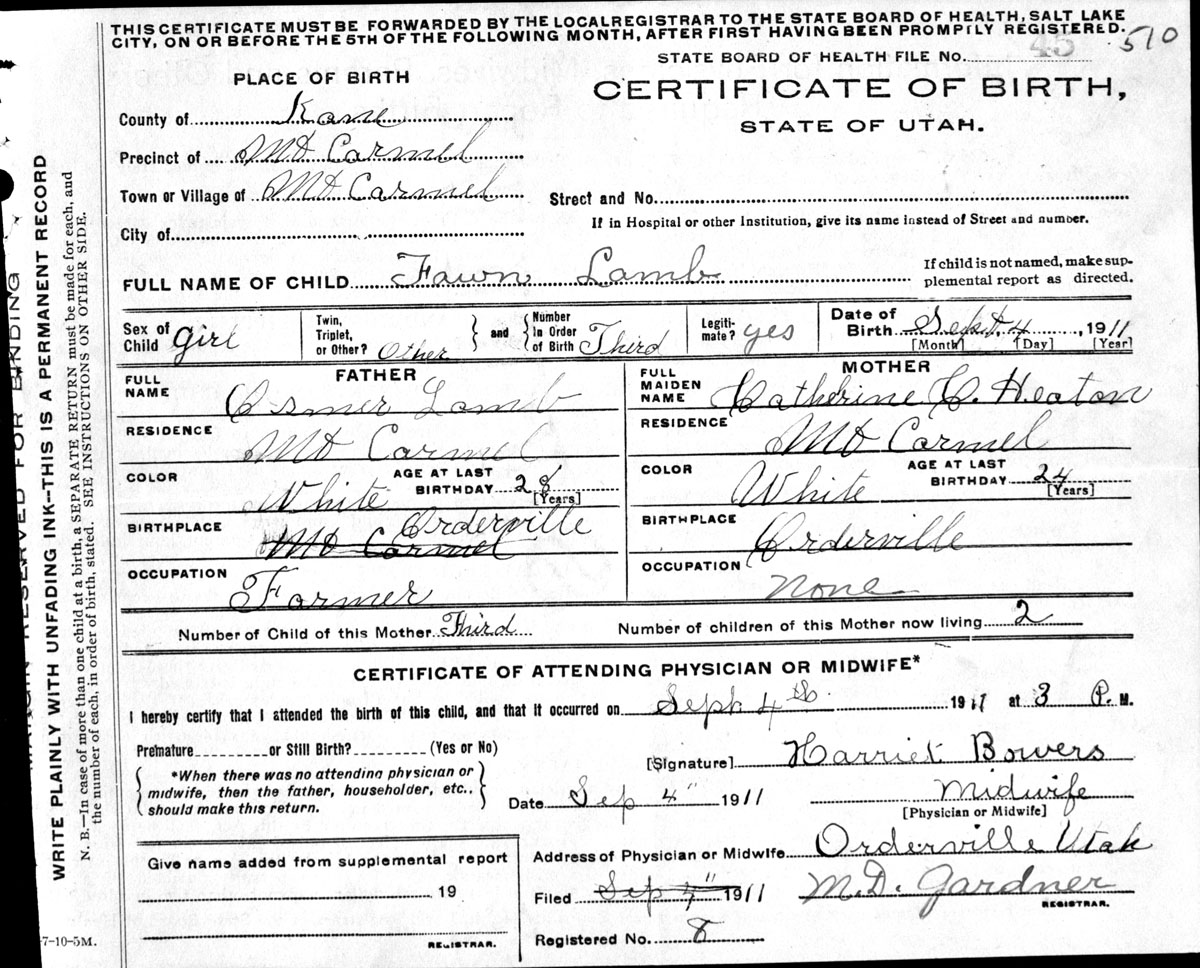 THIS CERTIFICATE MUST BE FORWARDED BY THE LOCALREGISTRAR TO THE STATE BOARD OF HEALTH, SALT LAKE
CITY, ON OR BEFORE THE 5TH OF THE FOLLOWING MONTH, AFTER FIRST HAVING BEEN PROMPILY REGISTERED.
510
STATE BOARD OF HEALTH FILE NO. 45
PLACE OF BIRTH
CERTIFICATE OF BIRTH,
STATE OF UTAH.
County of Kane
Precinct of Mt Carmel
Town or Village of Mt Carmel
Street and No.
If in Hospital or other Institution, give its name instead of Street and number.
City of
FULL NAME OF CHILD Fawn Lamb
If child is not named, make sup-
plemental report as directed.
Sex of Child girl
Twin, Triplet, or Other? Other
and
Number In Order of Birth Third
Legiti-mate? yes
Date of Birth Sept. 4, 1911
[Month] [Day] [Year]
FATHER
FULL NAME Osmer Lamb
RESIDENCE Mt Carmel
COLOR White
AGE AT LAST BIRTHDAY 28
[Years]
BIRTHPLACE Mt Carmel Orderville
OCCUPATION Farmer
MOTHER
FULL MAIDEN NAME Catherine C. Heaton
RESIDENCE Mt Carmel
COLOR White
AGE AT LAST BIRTHDAY 24
[Years]
BIRTHPLACE Orderville
OCCUPATION None
Number of Child of this Mother Third
Number of children of this Mother now living 2
CERTIFICATE OF ATTENDING PHYSICIAN OR MIDWIFE*
I hereby certify that I attended the birth of this child, and that it occurred on Sept 4th 1911 at 3 P. M.
Premature or Still Birth? (Yes or No)
*When there was no attending physician or
midwife, then the father, householder, etc.,
should make this return.
[Signature] Harriet Bowers
Date Sep 4" 1911
Midwife
[Physician or Midwife]
Give name added from supplemental report
19
REGISTRAR.
Address of Physician or Midwife Orderville Utah
Filed Sep 4" 1911
M.D. Gardner
REGISTRAR.
Registered No. 8
7-10-5M.
MARGIN RESERVED FOR BINDING
WRITE PLAINLY WITH UNFADING INK--THIS IS A PERMANENT RECORD
N. B.—In case of more than one child at a birth, a SEPARATE RETURN must be made for each, and
the number of each, in order of birth, stated. SEE INSTRUCTIONS ON OTHER SIDE.